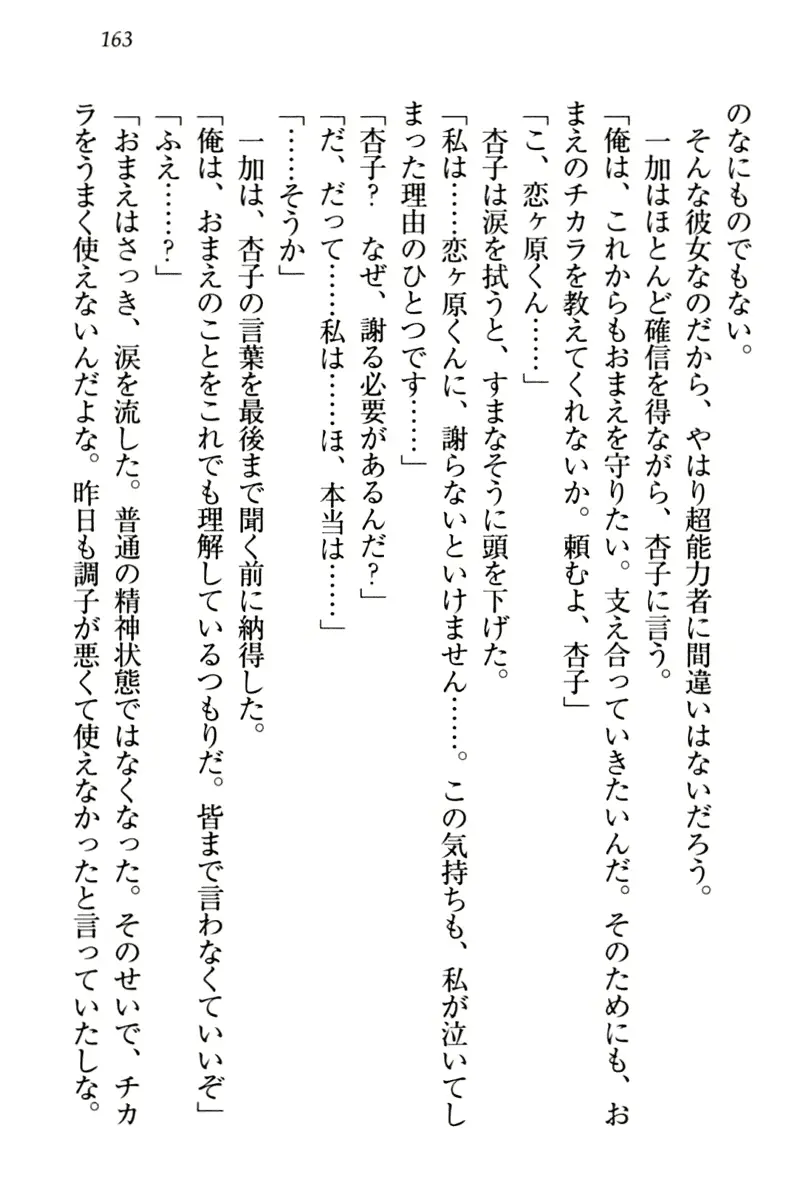 163
のなにものでもない。
そんな彼女なのだから、やはり超能力者に間違いはないだろう。
一加はほとんど確信を得ながら、杏子に言う。
「俺は、これからもおまえを守りたい。支え合っていきたいんだ。そのためにも、お
まえのチカラを教えてくれないか。頼むよ、杏子」
「こ、恋ヶ原くん……」
杏子は涙を拭うと、すまなそうに頭を下げた。
「私は……恋ヶ原くんに、謝らないといけません……。この気持ちも、私が泣いてし
まった理由のひとつです……」
「杏子？　なぜ、謝る必要があるんだ？」
「だ、だって……私は……ほ、本当は……」
「……そうか」
一加は、杏子の言葉を最後まで聞く前に納得した。
「俺は、おまえのことをこれでも理解しているつもりだ。皆まで言わなくていいぞ」
「ふえ……？」
「おまえはさっき、涙を流した。普通の精神状態ではなくなった。そのせいで、チカ
ラをうまく使えないんだよな。昨日も調子が悪くて使えなかったと言っていたしな。